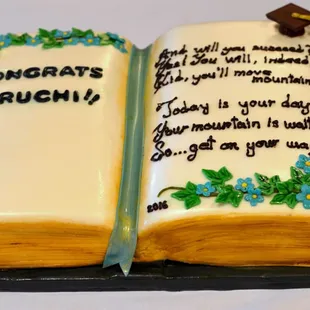 CONGRATS
RUCHI!!
And will you succeed?
Yes! You will, indeed
Kid, you'll move
mountain
Today is your day
Your mountain is wait
So...get on your wa
2016